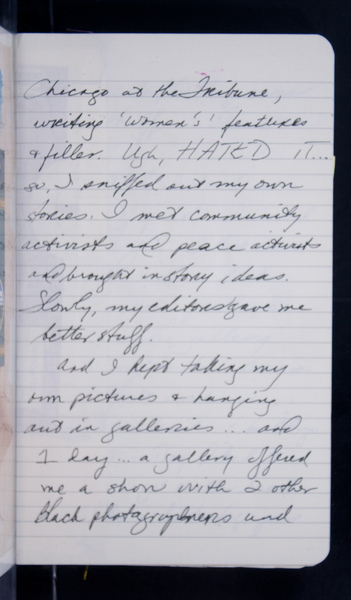 Chicago at the Tribune,
writing 'women's' features
& filler. Ugh, HATED IT...
so, I sniffed out my own
stories. I met community
activists and peace activists
and brought in story ideas.
Slowly, my editors gave me
better stuff.
and I kept taking my
own pictures & hanging
out in galleries... and
1 day... a gallery offered
me a show with 2 other
Black photographers and